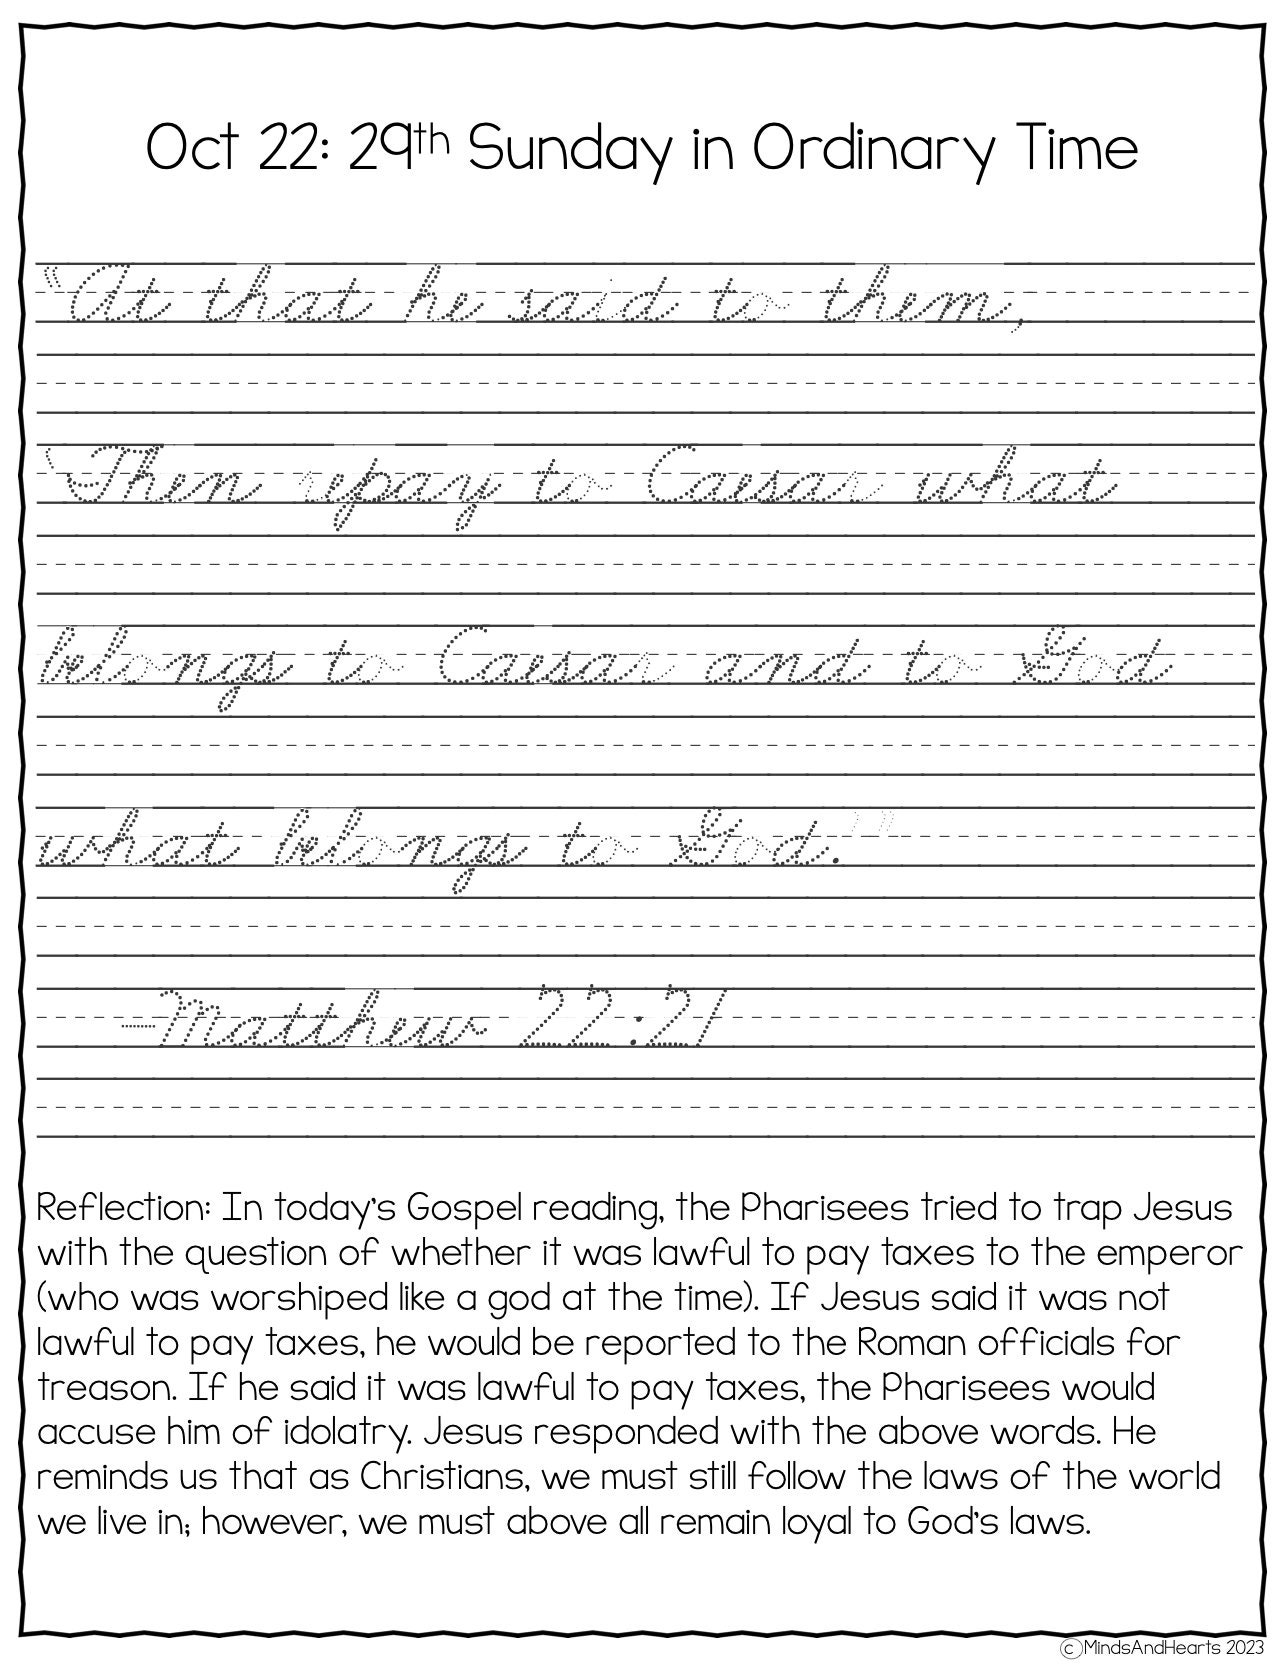 Oct 22: 29th Sunday in Ordinary Time
“At that he said to them,
‘Then repay to Caesar what
belongs to Caesar and to God
what belongs to God.’”
—Matthew 22:21
Reflection: In today’s Gospel reading, the Pharisees tried to trap Jesus
with the question of whether it was lawful to pay taxes to the emperor
(who was worshiped like a god at the time). If Jesus said it was not
lawful to pay taxes, he would be reported to the Roman officials for
treason. If he said it was lawful to pay taxes, the Pharisees would
accuse him of idolatry. Jesus responded with the above words. He
reminds us that as Christians, we must still follow the laws of the world
we live in; however, we must above all remain loyal to God’s laws.
©MindsAndHearts 2023